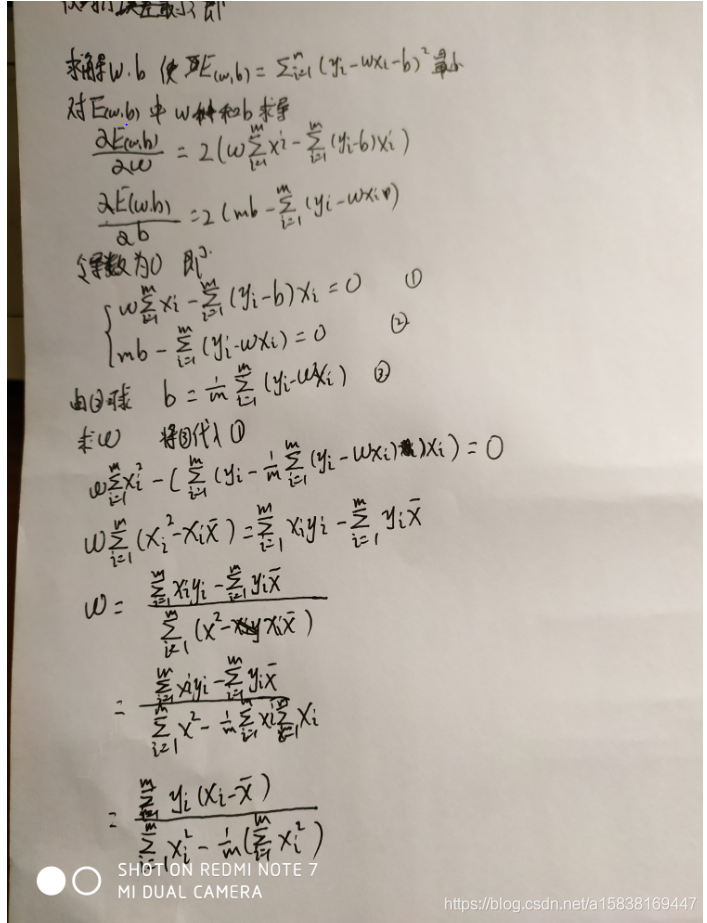 求解w.b 使E(w,b) = Σᵢ₌₁ᵐ (yi-wxi-b)² 最小
对E(w,b)中w和b求导
∂E(w,b)/∂w = 2(wΣᵢ₌₁ᵐ xi - Σᵢ₌₁ᵐ (yi-b)xi)
∂E(w,b)/∂b = 2(mb - Σᵢ₌₁ᵐ (yi-wxi))
令导数为0 即
wΣᵢ₌₁ᵐ xi - Σᵢ₌₁ᵐ (yi-b)xi = 0 ①
mb - Σᵢ₌₁ᵐ (yi-wxi) = 0 ②
由②球 b = 1/m Σᵢ₌₁ᵐ (yi-wxi) ③
求w 将③代入①
wΣᵢ₌₁ᵐ xi² - (Σᵢ₌₁ᵐ (yi - 1/m Σᵢ₌₁ᵐ (yi-wxi))xi) = 0
wΣᵢ₌₁ᵐ (xi²-xix̄) = Σᵢ₌₁ᵐ xiyi - Σᵢ₌₁ᵐ yix̄
w = (Σᵢ₌₁ᵐ xiyi - Σᵢ₌₁ᵐ yix̄) / (Σᵢ₌₁ᵐ (x²-xix̄))
= (Σᵢ₌₁ᵐ xiyi - Σᵢ₌₁ᵐ yix̄) / (Σᵢ₌₁ᵐ x² - 1/m Σᵢ₌₁ᵐ xi Σᵢ₌₁ᵐ xi)
= (Σᵢ₌₁ᵐ yi(xi-x̄)) / (Σᵢ₌₁ᵐ xi² - 1/m(Σᵢ₌₁ᵐ xi²))
SHOT ON REDMI NOTE 7
MI DUAL CAMERA
https://blog.csdn.net/a15838169447